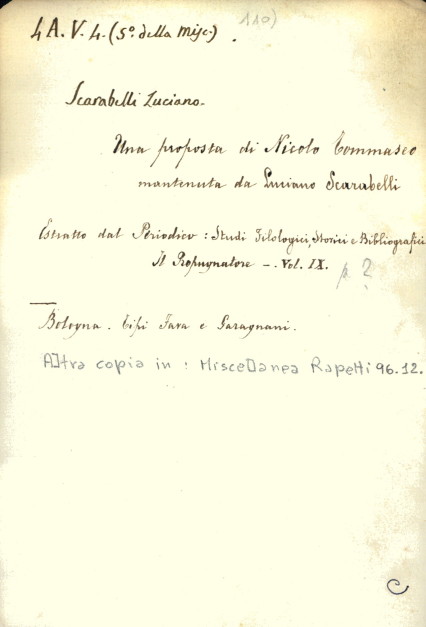 110)
4 A. V. 4. (5º. della Misc.) .
Scarabelli Luciano.
Una proposta di Nicolo Tommaseo
mantenuta da Luciano Scarabelli
Estratto dal Periodico : Studi Filologici, Storici e Bibliografici
Il Propugnatore - . Vol. IX.
p ?
Bologna . Tipi Fava e Garagnani .
Altra copia in : Miscellanea Rapetti 96.12.
C